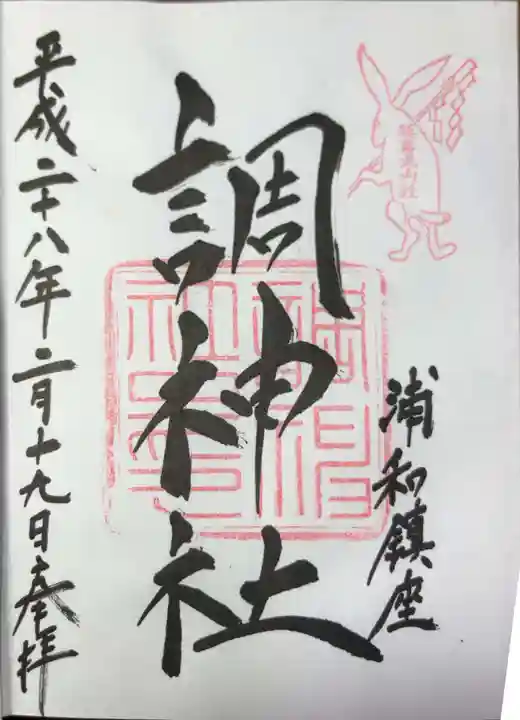 浦和鎮座
調神社
平成二十八年二月十九日奉拝